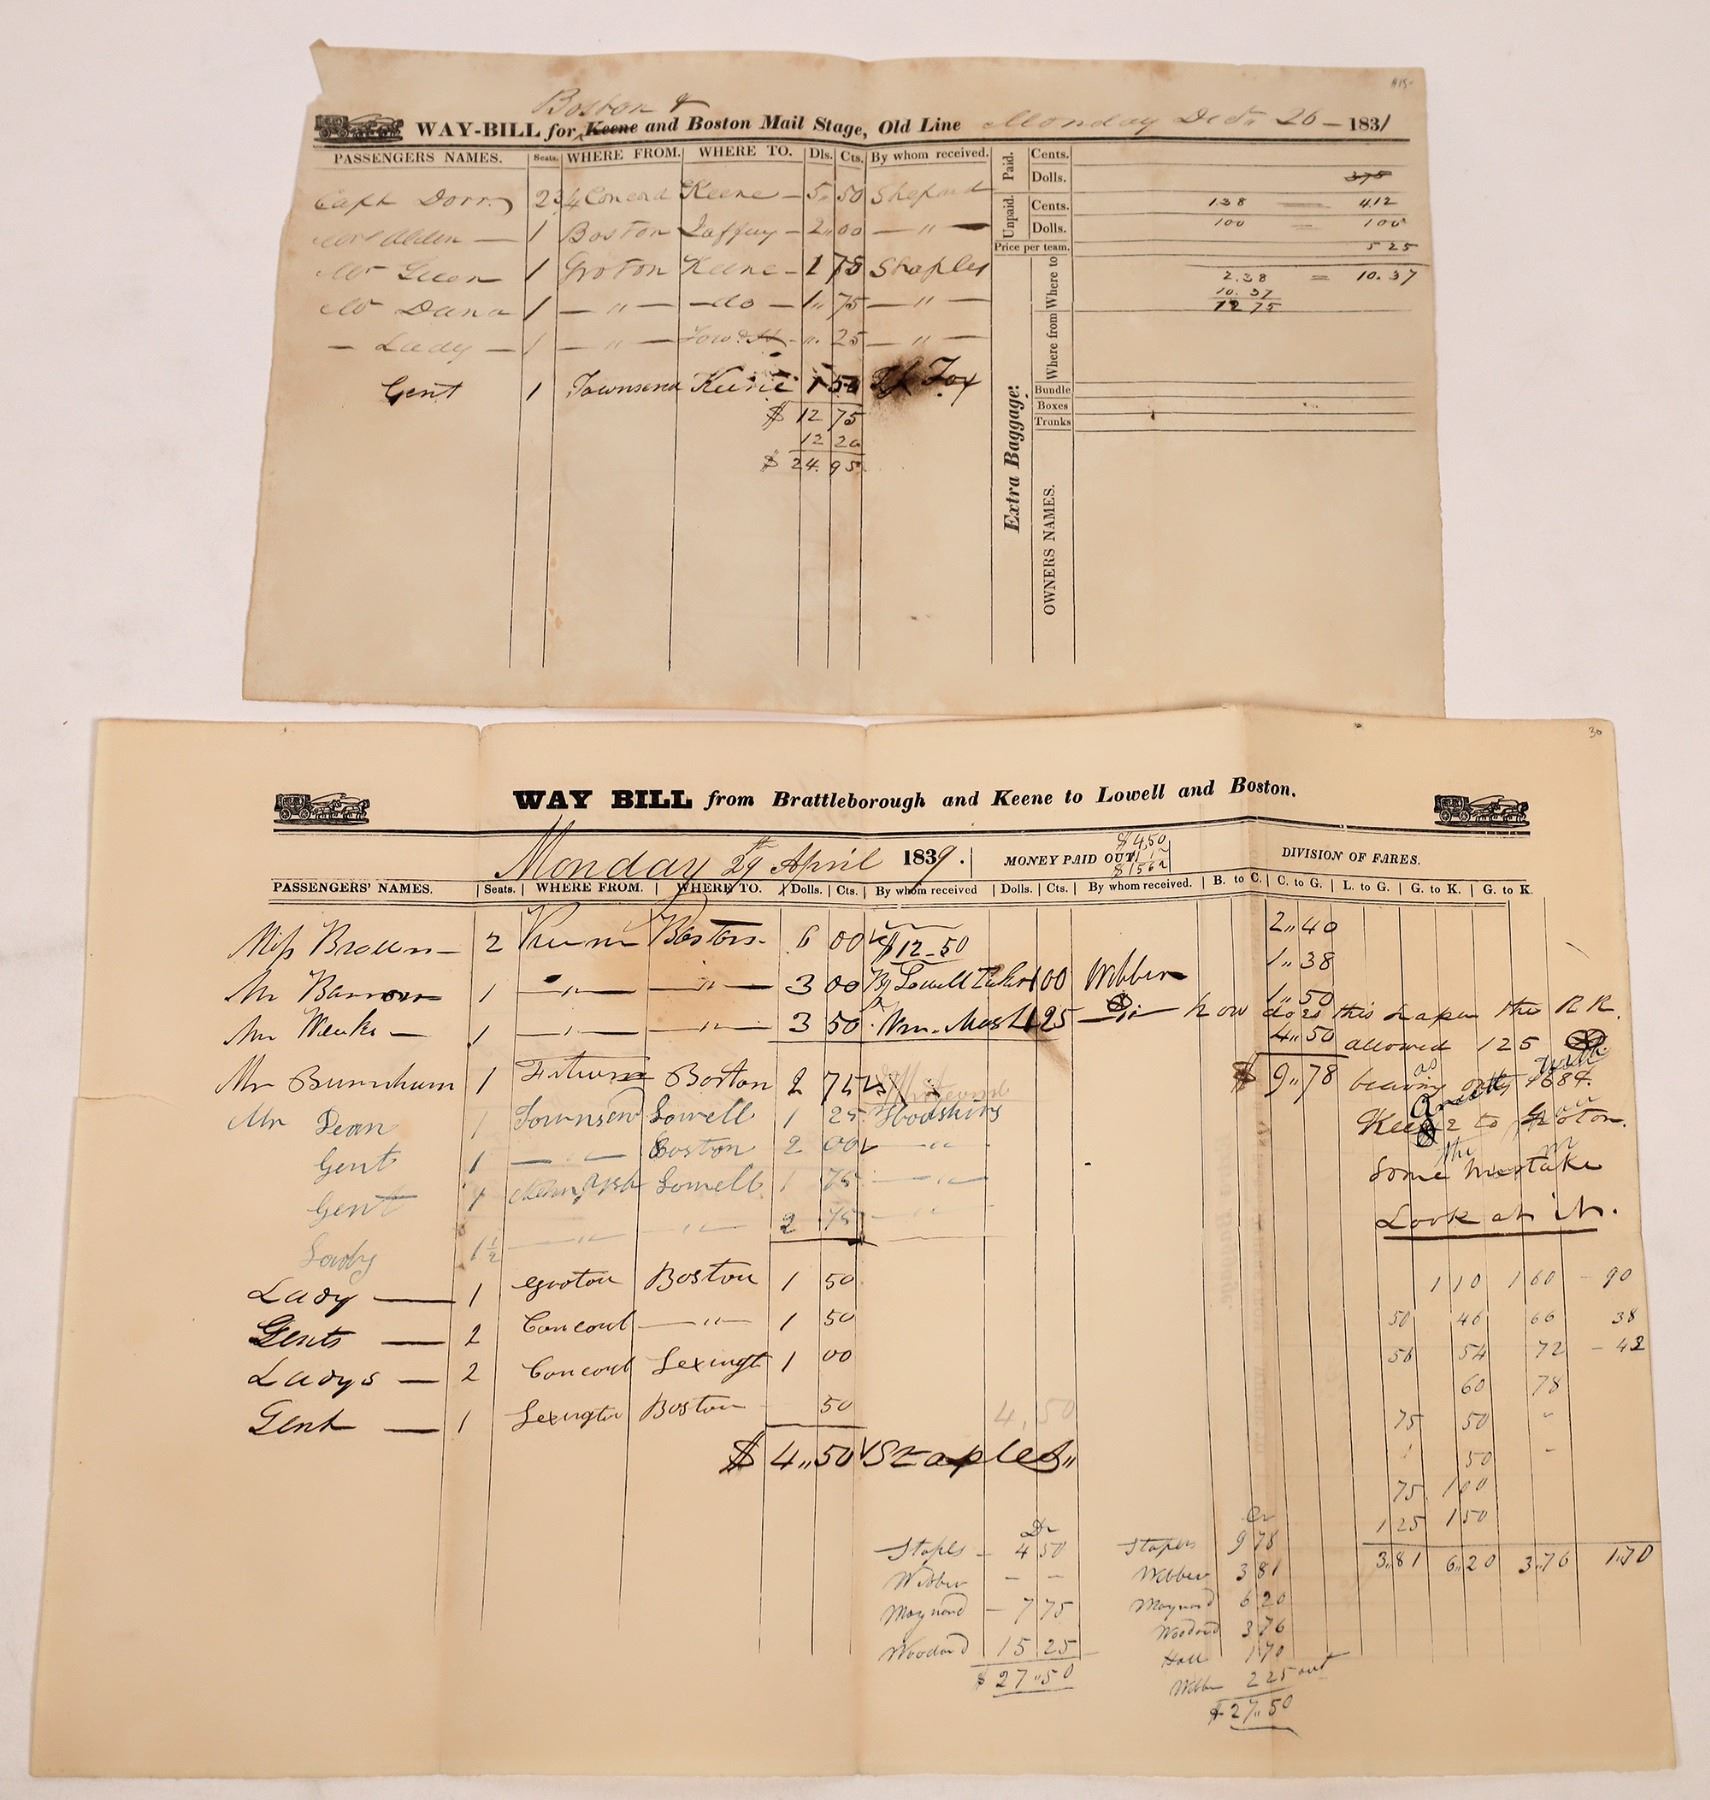 Boston &
WAY-BILL for Keene and Boston Mail Stage, Old Line Monday Decr. 26 — 1831
PASSENGERS NAMES. Seats. WHERE FROM. WHERE TO. Dls. Cts. By whom received. Paid. Cents.
Dolls. 375
Capt Dorr 2 3/4 Concord Keene — 5,, 50 Shepard Unpaid. Cents. 138 — 412
Alden — 1 Boston Jaffrey — 2,, 00 — " — Dolls. 100 — 100
Price per team. 5 25
Mr Green 1 Groton Keene — 1 75 Staples Where to 2.38 = 10.37
10.37
Mr Dana 1 — " — — do — 1,, 75 — " — 12 75
— Lady — 1 — " — ,, 25 — " — Where from
Gent 1 Townsend Keene 1 50 Fox Bundle
$ 12 75 Boxes
12 20 Trunks
$ 24. 95
Extra Baggage:
OWNERS NAMES.
30
WAY BILL from Brattleborough and Keene to Lowell and Boston.
Monday 29th April 1839. MONEY PAID OUT. $4,50 DIVISION OF FARES.
$1562
PASSENGERS' NAMES. Seats. WHERE FROM. WHERE TO. Dolls. Cts. By whom received Dolls. Cts. By whom received. B. to C. C. to G. L. to G. G. to K. G. to K.
Miss Brown — 2 Keene Boston. 6 00 $12-50 2,, 40
1,, 38
Mr 1 — " — — " — 3 00 By Lowell 1 00 Webber 1,, 50
Mr Weeks — 1 — " — — " — 3 50 1 25 — " — how does this happen the R R.
4,, 50 allowed 125
Mr Burnham 1 Boston 2 75 $ 9,, 78 leaving only 1684.
as
Mr Dean 1 Townsend Lowell 1 25 Hodskins Keene to Groton.
Gent 1 — " — Boston 2 00 — " — the
Some Mistake
Gent 1 Lowell 1 75 — " —
Look at it.
Lady 1 1/2 — " — — " — 2 75 — " —
Lady — 1 Groton Boston 1 50 1 10 1 60 - 90
Gents — 2 Concord — " — 1 50 50 46 66 38
Ladys — 2 Concord Lexingt 1 00 56 54 72 - 43
60 78
Gent — 1 Lexington Boston 50 4,50 75 50 "
$ 4,, 50 Staples,, 50 "
75 100
Dr Cr 125 150
Staples — 4 50 Staples 9 78 3,81 6,,20 3,,76 1,70
Webber — — Webber 3 81
Maynard — 7 75 Maynard 6 20
Woodard 15 25 Woodard 3 76
$ 27,,50 Hall 1 70
Webber 2 25 out
$ 27,,50